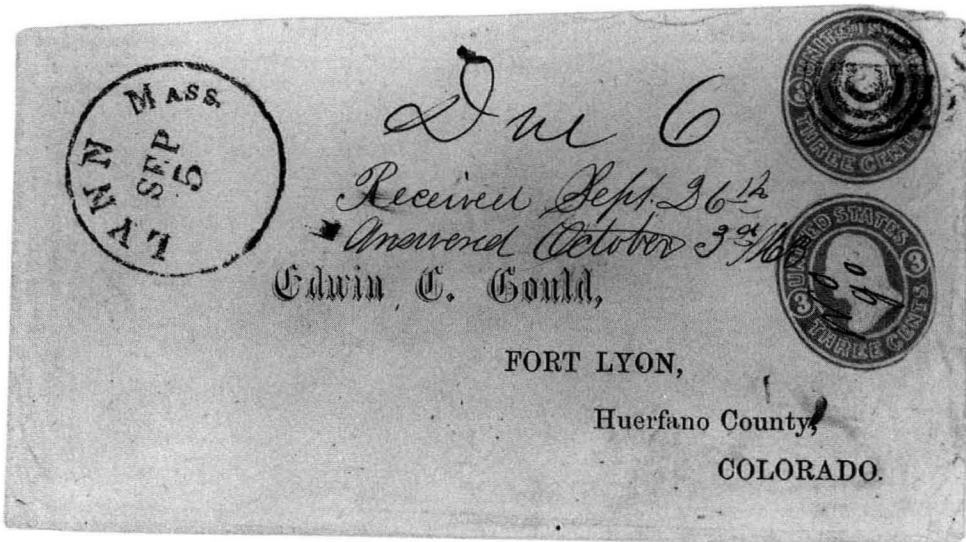 LYNN MASS.
SEP
5
Due 6
Received Sept. 26th
Answered October 3d
Edwin C. Gould,
FORT LYON,
Huerfano County,
COLORADO.
UNITED STATES
THREE CENTS
UNITED STATES
3 3
THREE CENTS
No
go